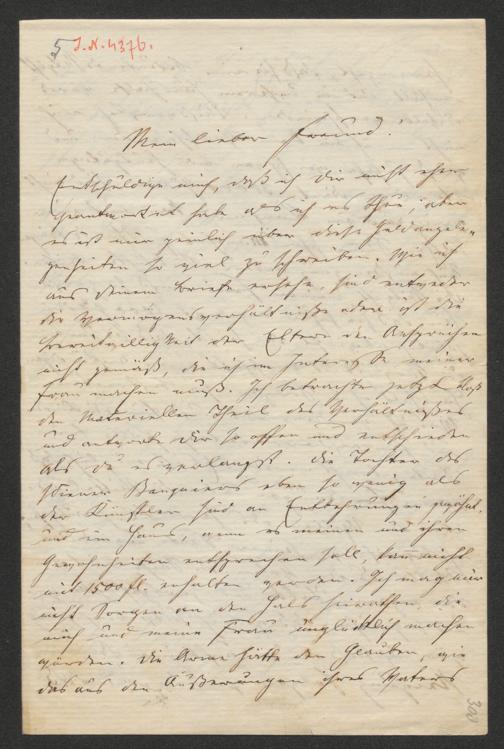 5 J.N. 4376.
Mein lieber Freund!
Entschuldige mich, daß ich Dir nicht eher
geantwortet habe als ich es thue; aber
es ist mir peinlich über diese Geldangele-
genheiten so viel zu schreiben. Wie ich
aus Deinem Briefe ersehe, sind entweder
die Vermögensverhältniße oder ist die
Bereitwilligkeit der Eltern den Ansprüchen
nicht gemäß, die ich im Interesse meiner
Frau machen muß. Ich betrachte jetzt bloß
den materiellen Theil des Verhältnißes
und antworte Dir so offen und entschieden
als Du es verlangst. Die Tochter des
Wiener Banquiers eben so wenig als
der Künstler sind an Entbehrungen gewöhnt,
und ein Haus, wenn es meinen und ihren
Gewohnheiten entsprechen soll, kann nicht
mit 1500 fl. erhalten werden. Ich mag mir
nicht Sorgen an den Hals heirathen, die
mich und meine Frau unglücklich machen
würden. Die Arme hätte den Glauben, wie
das aus den Äußerungen ihres Vaters
300